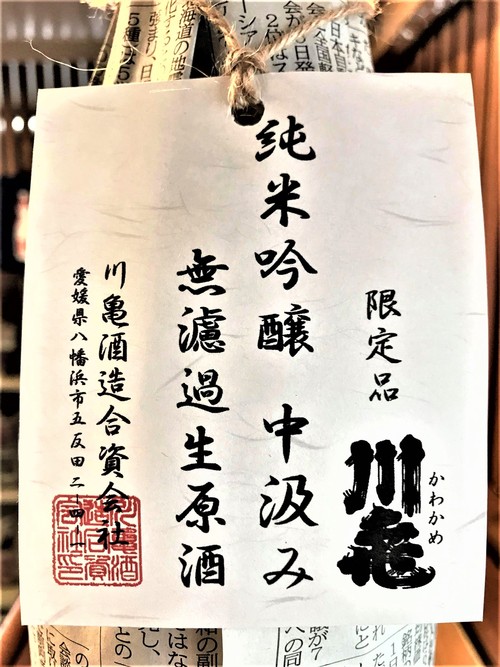 限定品
川亀
かわかめ
純米吟醸 中汲み
無濾過生原酒
川亀酒造合資会社
愛媛県八幡浜市五反田二-四-一